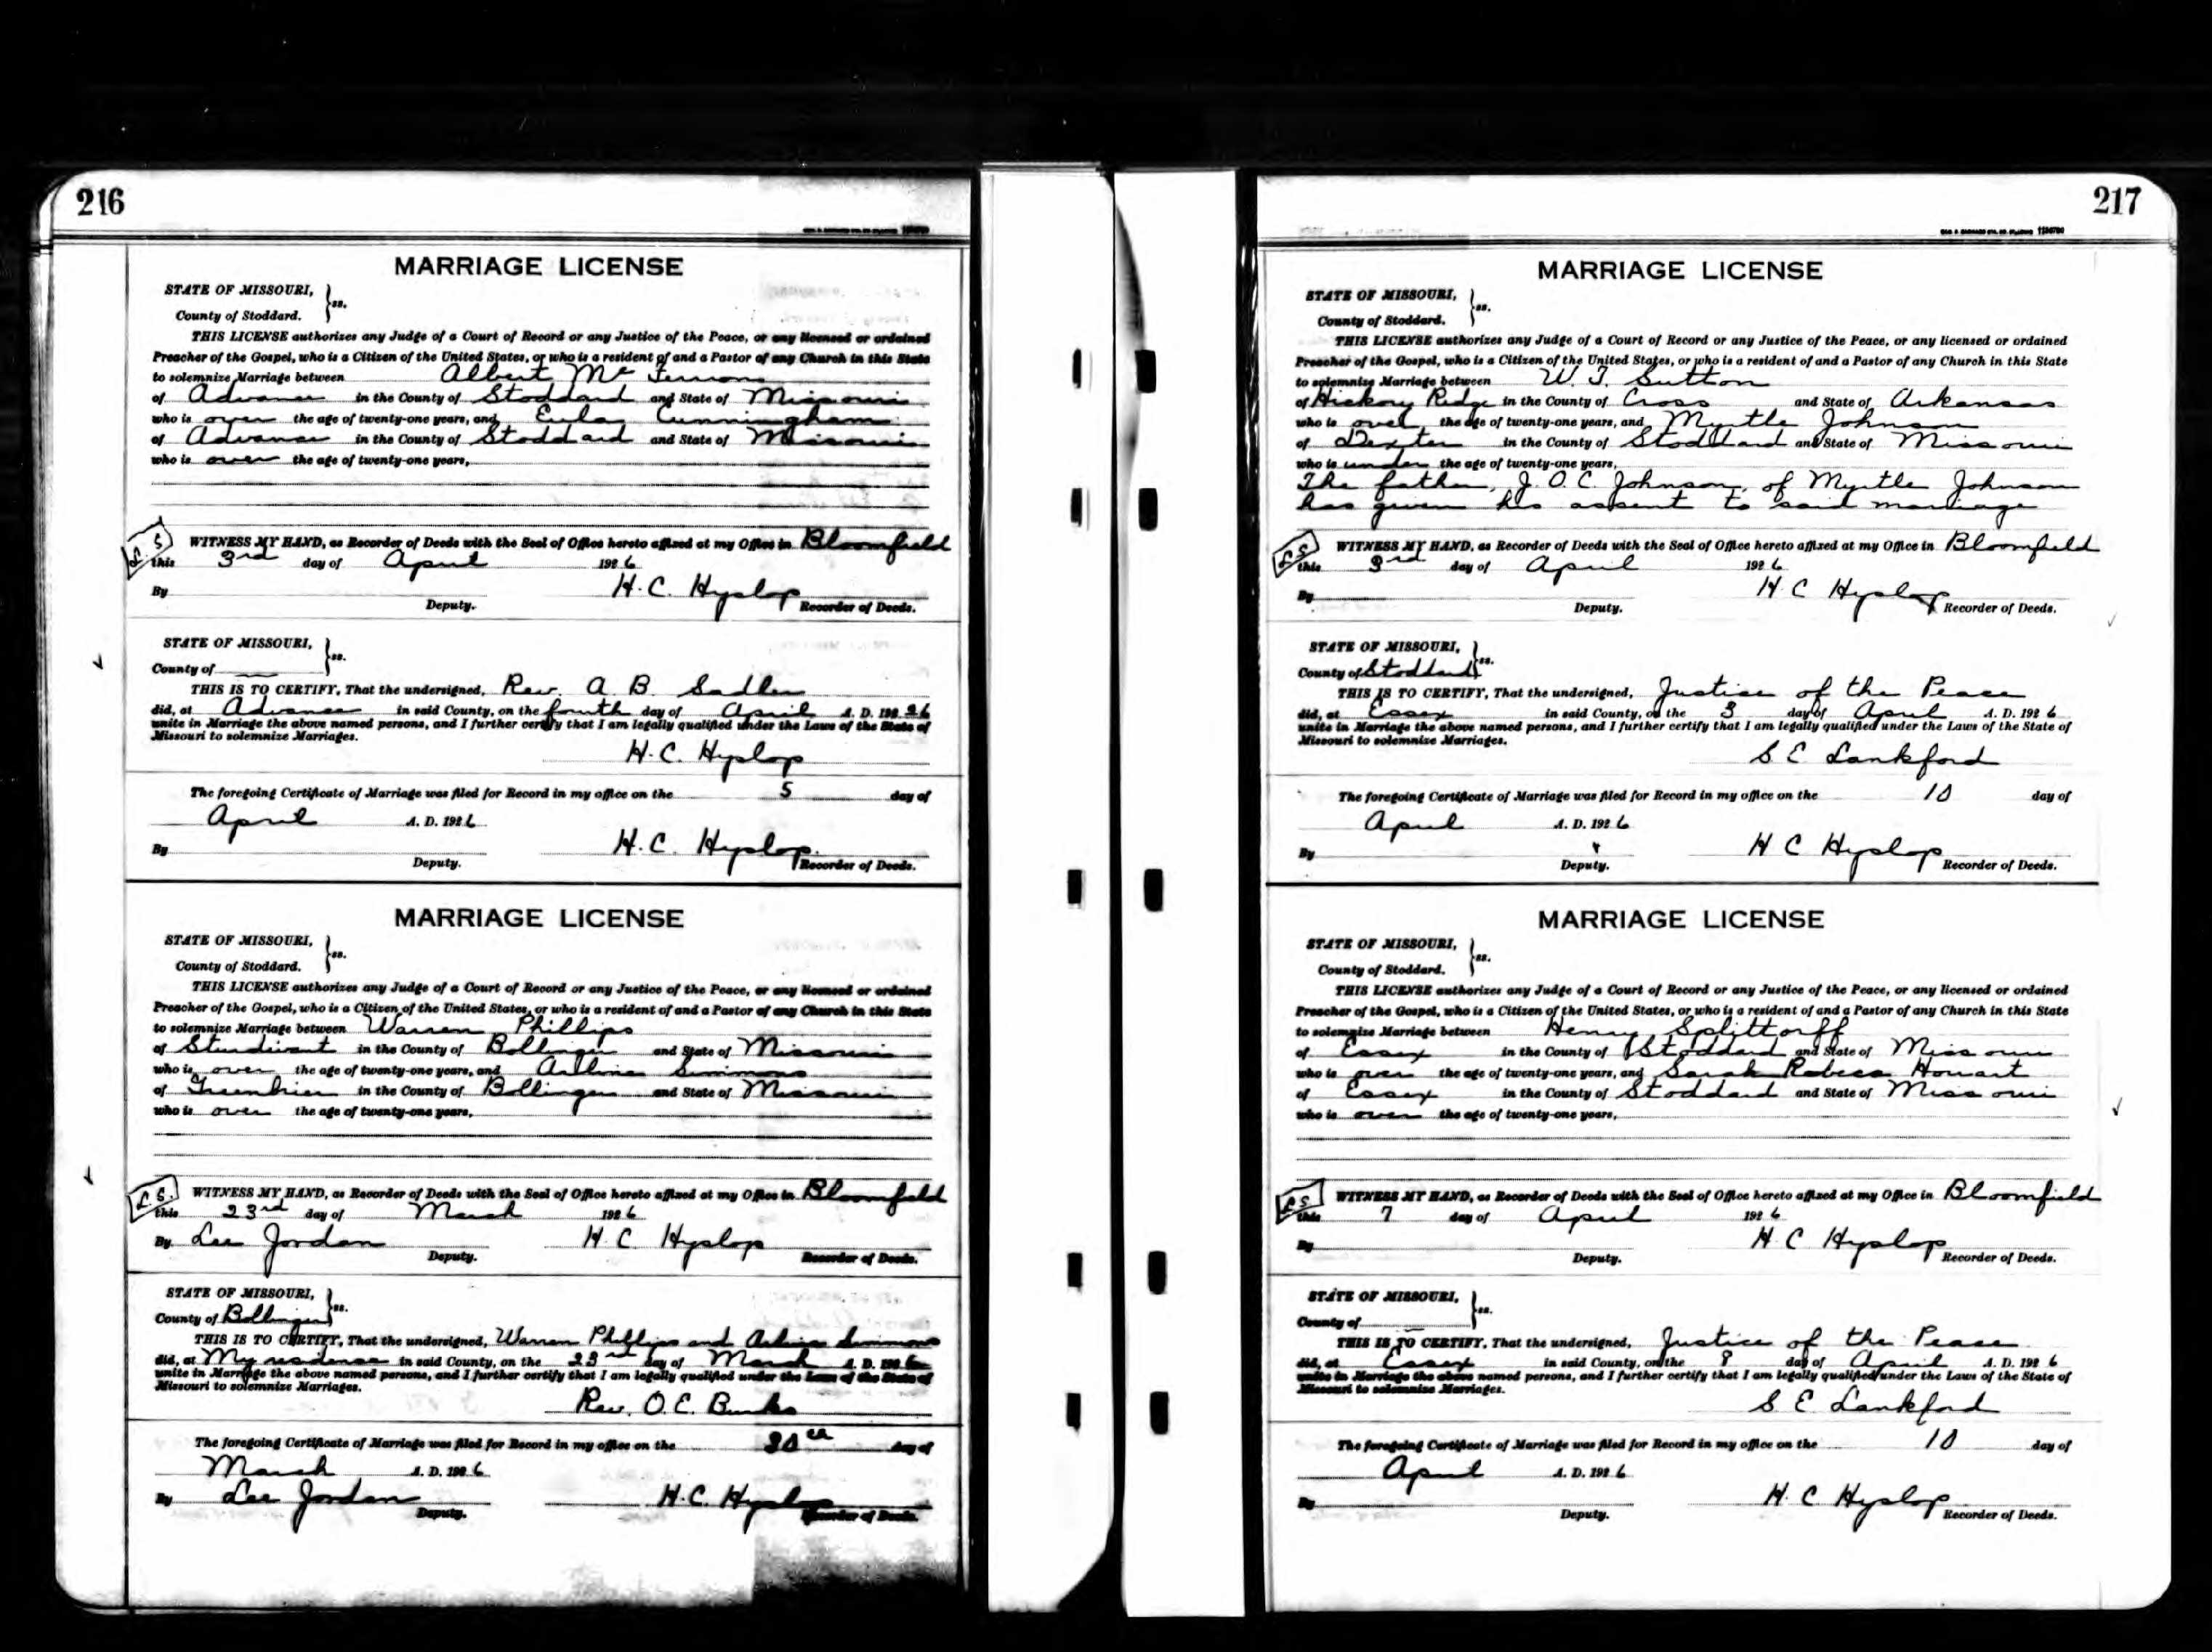 216
MARRIAGE LICENSE
STATE OF MISSOURI,
County of Stoddard. } ss.
THIS LICENSE authorizes any Judge of a Court of Record or any Justice of the Peace, or any licensed or ordained
Preacher of the Gospel, who is a Citizen of the United States, or who is a resident of and a Pastor of any Church in this State
to solemnize Marriage between Albert Mc
of Advance in the County of Stoddard and State of Missouri
who is over the age of twenty-one years, and Eula Cunningham
of Advance in the County of Stoddard and State of Missouri
who is over the age of twenty-one years,
L. S. WITNESS MY HAND, as Recorder of Deeds with the Seal of Office hereto affixed at my Office in Bloomfield
this 3rd day of April 1926
By H. C. Hyslop
Deputy. Recorder of Deeds.
STATE OF MISSOURI,
County of } ss.
THIS IS TO CERTIFY, That the undersigned, Rev. A. B. Sadler
did, at Advance in said County, on the fourth day of April A. D. 192 26
unite in Marriage the above named persons, and I further certify that I am legally qualified under the Laws of the State of
Missouri to solemnize Marriages.
H. C. Hyslop
The foregoing Certificate of Marriage was filed for Record in my office on the 5 day of
April A. D. 1926
By H. C. Hyslop.
Deputy. Recorder of Deeds.
MARRIAGE LICENSE
STATE OF MISSOURI,
County of Stoddard. } ss.
THIS LICENSE authorizes any Judge of a Court of Record or any Justice of the Peace, or any licensed or ordained
Preacher of the Gospel, who is a Citizen of the United States, or who is a resident of and a Pastor of any Church in this State
to solemnize Marriage between Warren Phillips
of Sturdivant in the County of Bollinger and State of Missouri
who is over the age of twenty-one years, and Simmons
of Greenbrier in the County of Bollinger and State of Missouri
who is over the age of twenty-one years,
L. S. WITNESS MY HAND, as Recorder of Deeds with the Seal of Office hereto affixed at my Office in Bloomfield
this 23rd day of March 1926
By Lee Jordan H. C. Hyslop
Deputy. Recorder of Deeds.
STATE OF MISSOURI,
County of Bollinger } ss.
THIS IS TO CERTIFY, That the undersigned, Warren Phillips and Simmons
did, at My residence in said County, on the 23rd day of March A. D. 1926
unite in Marriage the above named persons, and I further certify that I am legally qualified under the Laws of the State of
Missouri to solemnize Marriages.
Rev. O. C.
The foregoing Certificate of Marriage was filed for Record in my office on the 30th day of
March A. D. 1926
By Lee Jordan H. C. Hyslop
Deputy. Recorder of Deeds.
217
MARRIAGE LICENSE
STATE OF MISSOURI,
County of Stoddard. } ss.
THIS LICENSE authorizes any Judge of a Court of Record or any Justice of the Peace, or any licensed or ordained
Preacher of the Gospel, who is a Citizen of the United States, or who is a resident of and a Pastor of any Church in this State
to solemnize Marriage between W. T. Sutton
of Hickory Ridge in the County of Cross and State of Arkansas
who is over the age of twenty-one years, and Myrtle Johnson
of Dexter in the County of Stoddard and State of Missouri
who is under the age of twenty-one years,
The father, J. O. C. Johnson, of Myrtle Johnson
has given his assent to said marriage
L. S. WITNESS MY HAND, as Recorder of Deeds with the Seal of Office hereto affixed at my Office in Bloomfield
this 3rd day of April 1926
By H C Hyslop
Deputy. Recorder of Deeds.
STATE OF MISSOURI,
County of Stoddard } ss.
THIS IS TO CERTIFY, That the undersigned, Justice of the Peace
did, at Essex in said County, on the 3 day of April A. D. 1926
unite in Marriage the above named persons, and I further certify that I am legally qualified under the Laws of the State of
Missouri to solemnize Marriages.
S E Lankford
The foregoing Certificate of Marriage was filed for Record in my office on the 10 day of
April A. D. 1926
By H C Hyslop
Deputy. Recorder of Deeds.
MARRIAGE LICENSE
STATE OF MISSOURI,
County of Stoddard. } ss.
THIS LICENSE authorizes any Judge of a Court of Record or any Justice of the Peace, or any licensed or ordained
Preacher of the Gospel, who is a Citizen of the United States, or who is a resident of and a Pastor of any Church in this State
to solemnize Marriage between Henry Splittorff
of Essex in the County of Stoddard and State of Missouri
who is over the age of twenty-one years, and Sarah Rebeca Howart
of Essex in the County of Stoddard and State of Missouri
who is over the age of twenty-one years,
L S WITNESS MY HAND, as Recorder of Deeds with the Seal of Office hereto affixed at my Office in Bloomfield
this 7 day of April 1926
By H C Hyslop
Deputy. Recorder of Deeds.
STATE OF MISSOURI,
County of } ss.
THIS IS TO CERTIFY, That the undersigned, Justice of the Peace
did, at Essex in said County, on the 8 day of April A. D. 1926
unite in Marriage the above named persons, and I further certify that I am legally qualified under the Laws of the State of
Missouri to solemnize Marriages.
S E Lankford
The foregoing Certificate of Marriage was filed for Record in my office on the 10 day of
April A. D. 1926
By H. C Hyslop
Deputy. Recorder of Deeds.